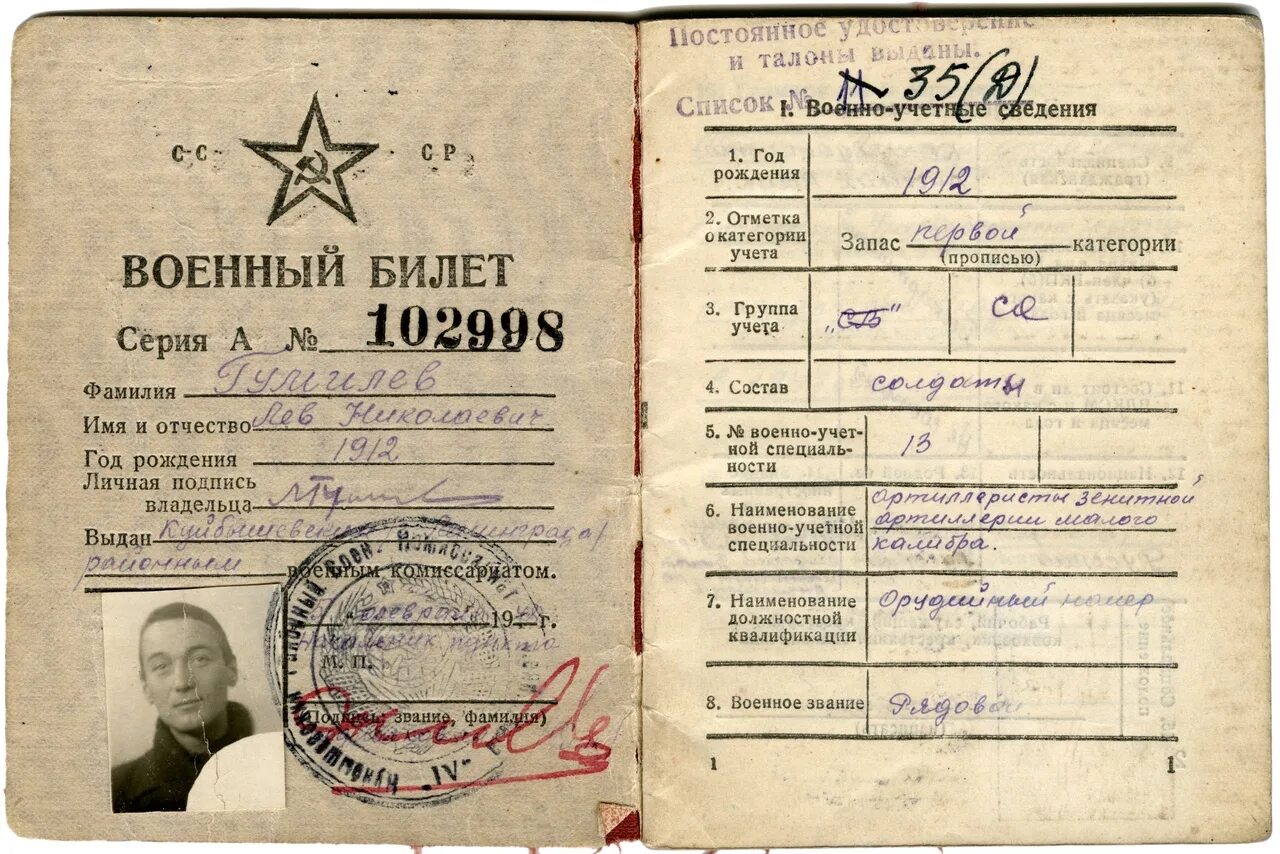 СССР
ВОЕННЫЙ БИЛЕТ
Серия А № 102998
Фамилия Гумилев
Имя и отчество Лев Николаевич
Год рождения 1912
Личная подпись
владельца
Выдан Куйбышевским Ленинграда
районным военным комиссариатом.
февраля 194 г.
начальник пункта
М. П.
(Подпись, звание, фамилия)
Постоянное удостоверение
и талоны выданы.
Список № 11 35 (Д)
I. Военно-учетные сведения
1. Год
рождения 1912
2. Отметка
о категории
учета
Запас первой категории
(прописью)
3. Группа
учета
„СТВ“ са
4. Состав солдаты
5. № военно-учет-
ной специаль-
ности
13
6. Наименование
военно-учетной
специальности
артиллеристы зенитной
артиллерии малого
калибра.
7. Наименование
должностной
квалификации
орудийный номер
8. Военное звание Рядовой
1
1